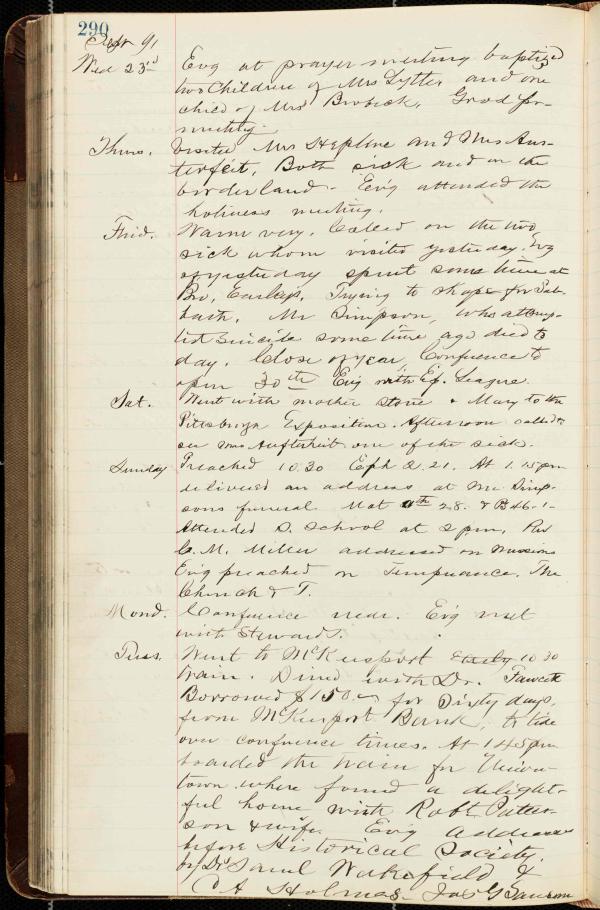 290
Sept 91
Wed 23rd Evg at prayer meeting baptized
two Children of Mrs Lytte, and one
child of Mrs Brobeck. Good pr-
meeting.
Thurs. Visited Mrs Hepline and Mrs Aus-
terfeit. Both sick and in the
borderland. Evg attended the
holiness meeting.
Frid. Warm very. Called on the two
sick whom visited yesterday. Evg
of yesterday spent some time at
Bro. Earleys. Trying to shape for Sab-
bath. Mr Simpson, who attemp-
ted suicide some time ago died to
day. Close of year, Conference to
open 30th Evg with Ep. League.
Sat. Went with mother Stone & Mary to the
Pittsburgh Exposition. Afternoon called to
see Mrs one of the sick.
Sunday Preached 10.30 Eph 2.21. At 1.15 pm
delivered an address at Mr Simp-
sons funeral. Mat 11th 28. & Ps 46-1-
Attended S. School at 2 pm, Rev
C. M. Miller addressed on Missions
Evg preached on Temperance. The
Church & T.
Mond. Conference near. Evg met
with Stewards.
Tues. Went to McKeesport 10 30
train. Dined with Dr. Fawcett
Borrowed $150.00 for Sixty days,
from McKeesport Bank, to tide
over conference times. At 1 45 pm
boarded the train for Union-
town where found a delight-
ful home with Robt Patter-
son & wife. Evg address
before Historical Society,
by Dr Saml Wakefield &
C A Holmes. Jas G Sansom